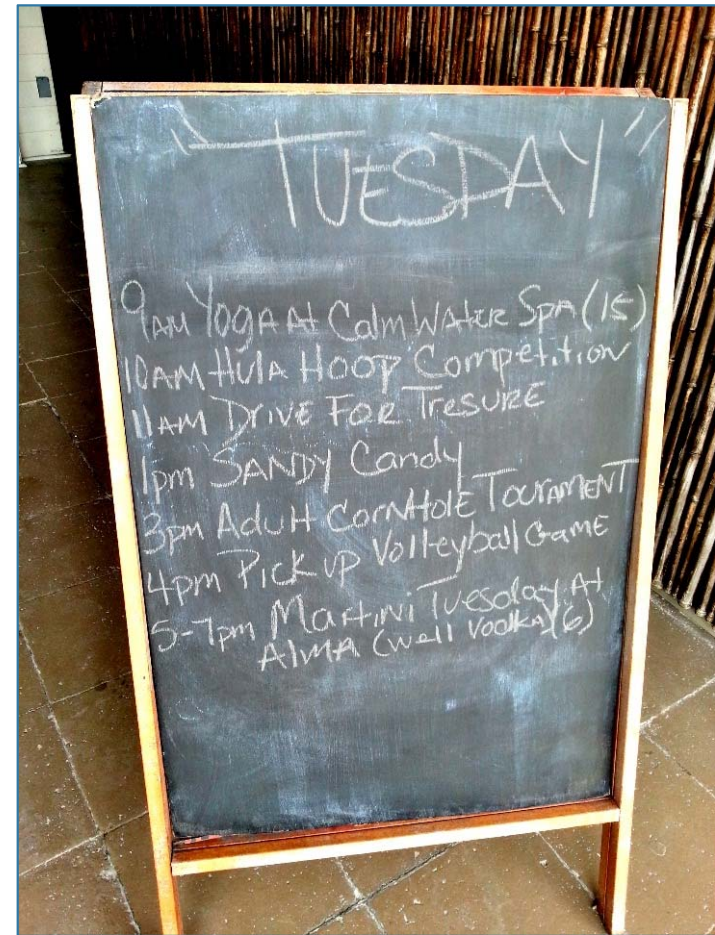 "TUESDAY"
9AM YOGA At Calm WAter SpA (15)
10AM HulA HOOP Competition
11AM DrIVE FOR TresURE
1pm SANDY Candy
3pm Adult CorNHole TOurAMENT
4pm PICK UP Volleyball Game
5-7pm MartiNi Tuesday At
AlMA (well Vodka)(6)